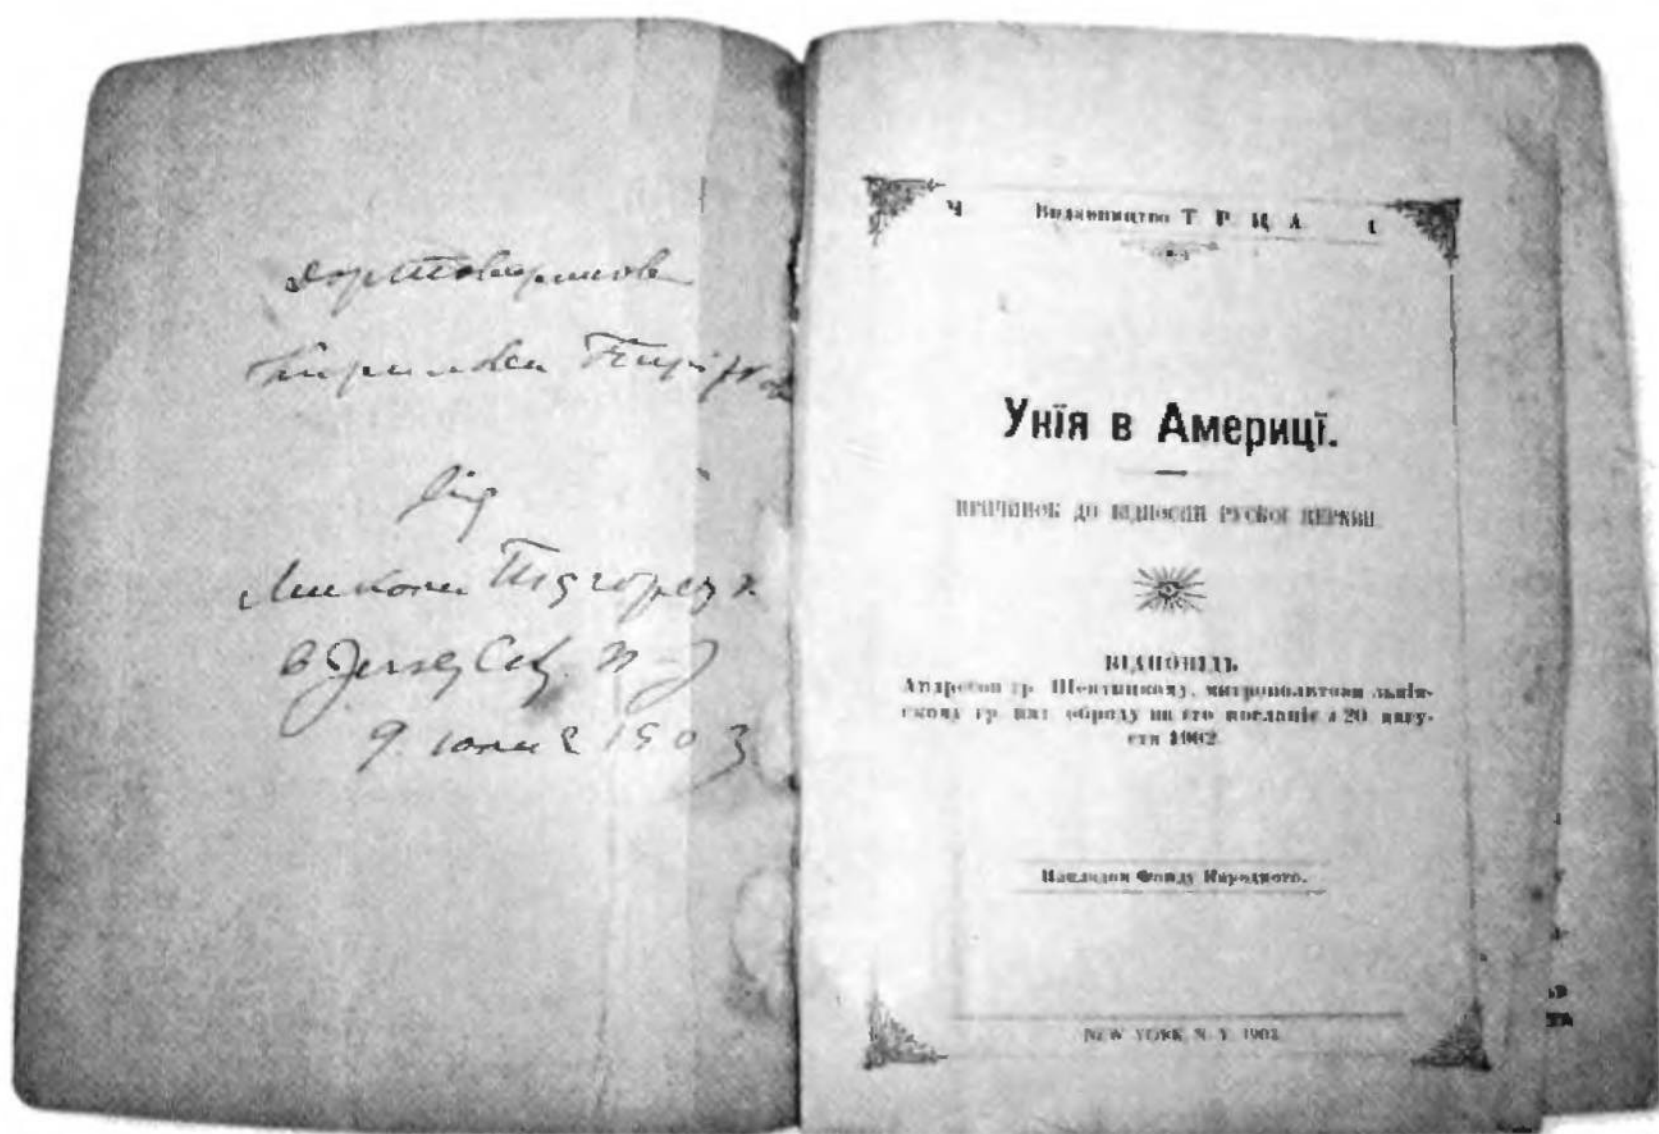 від
Миколи Підгорец
в Jersey City. N-J
9 1903
Ч Видавництво Т Р Ц А. 1
Унїя в Америцї.
ПРИЧИНОК ДО ВІДНОСИН РУСКОЇ ЦЕРКВИ
ВІДПОВІДЬ
Андреєви гр. Шептицкому, митрополитови львів-
скому гр. кат. обряду на єго посланіє з 20 авгу-
ста 1902.
Накладом Фонду Народного.
NEW YORK N. Y. 1903